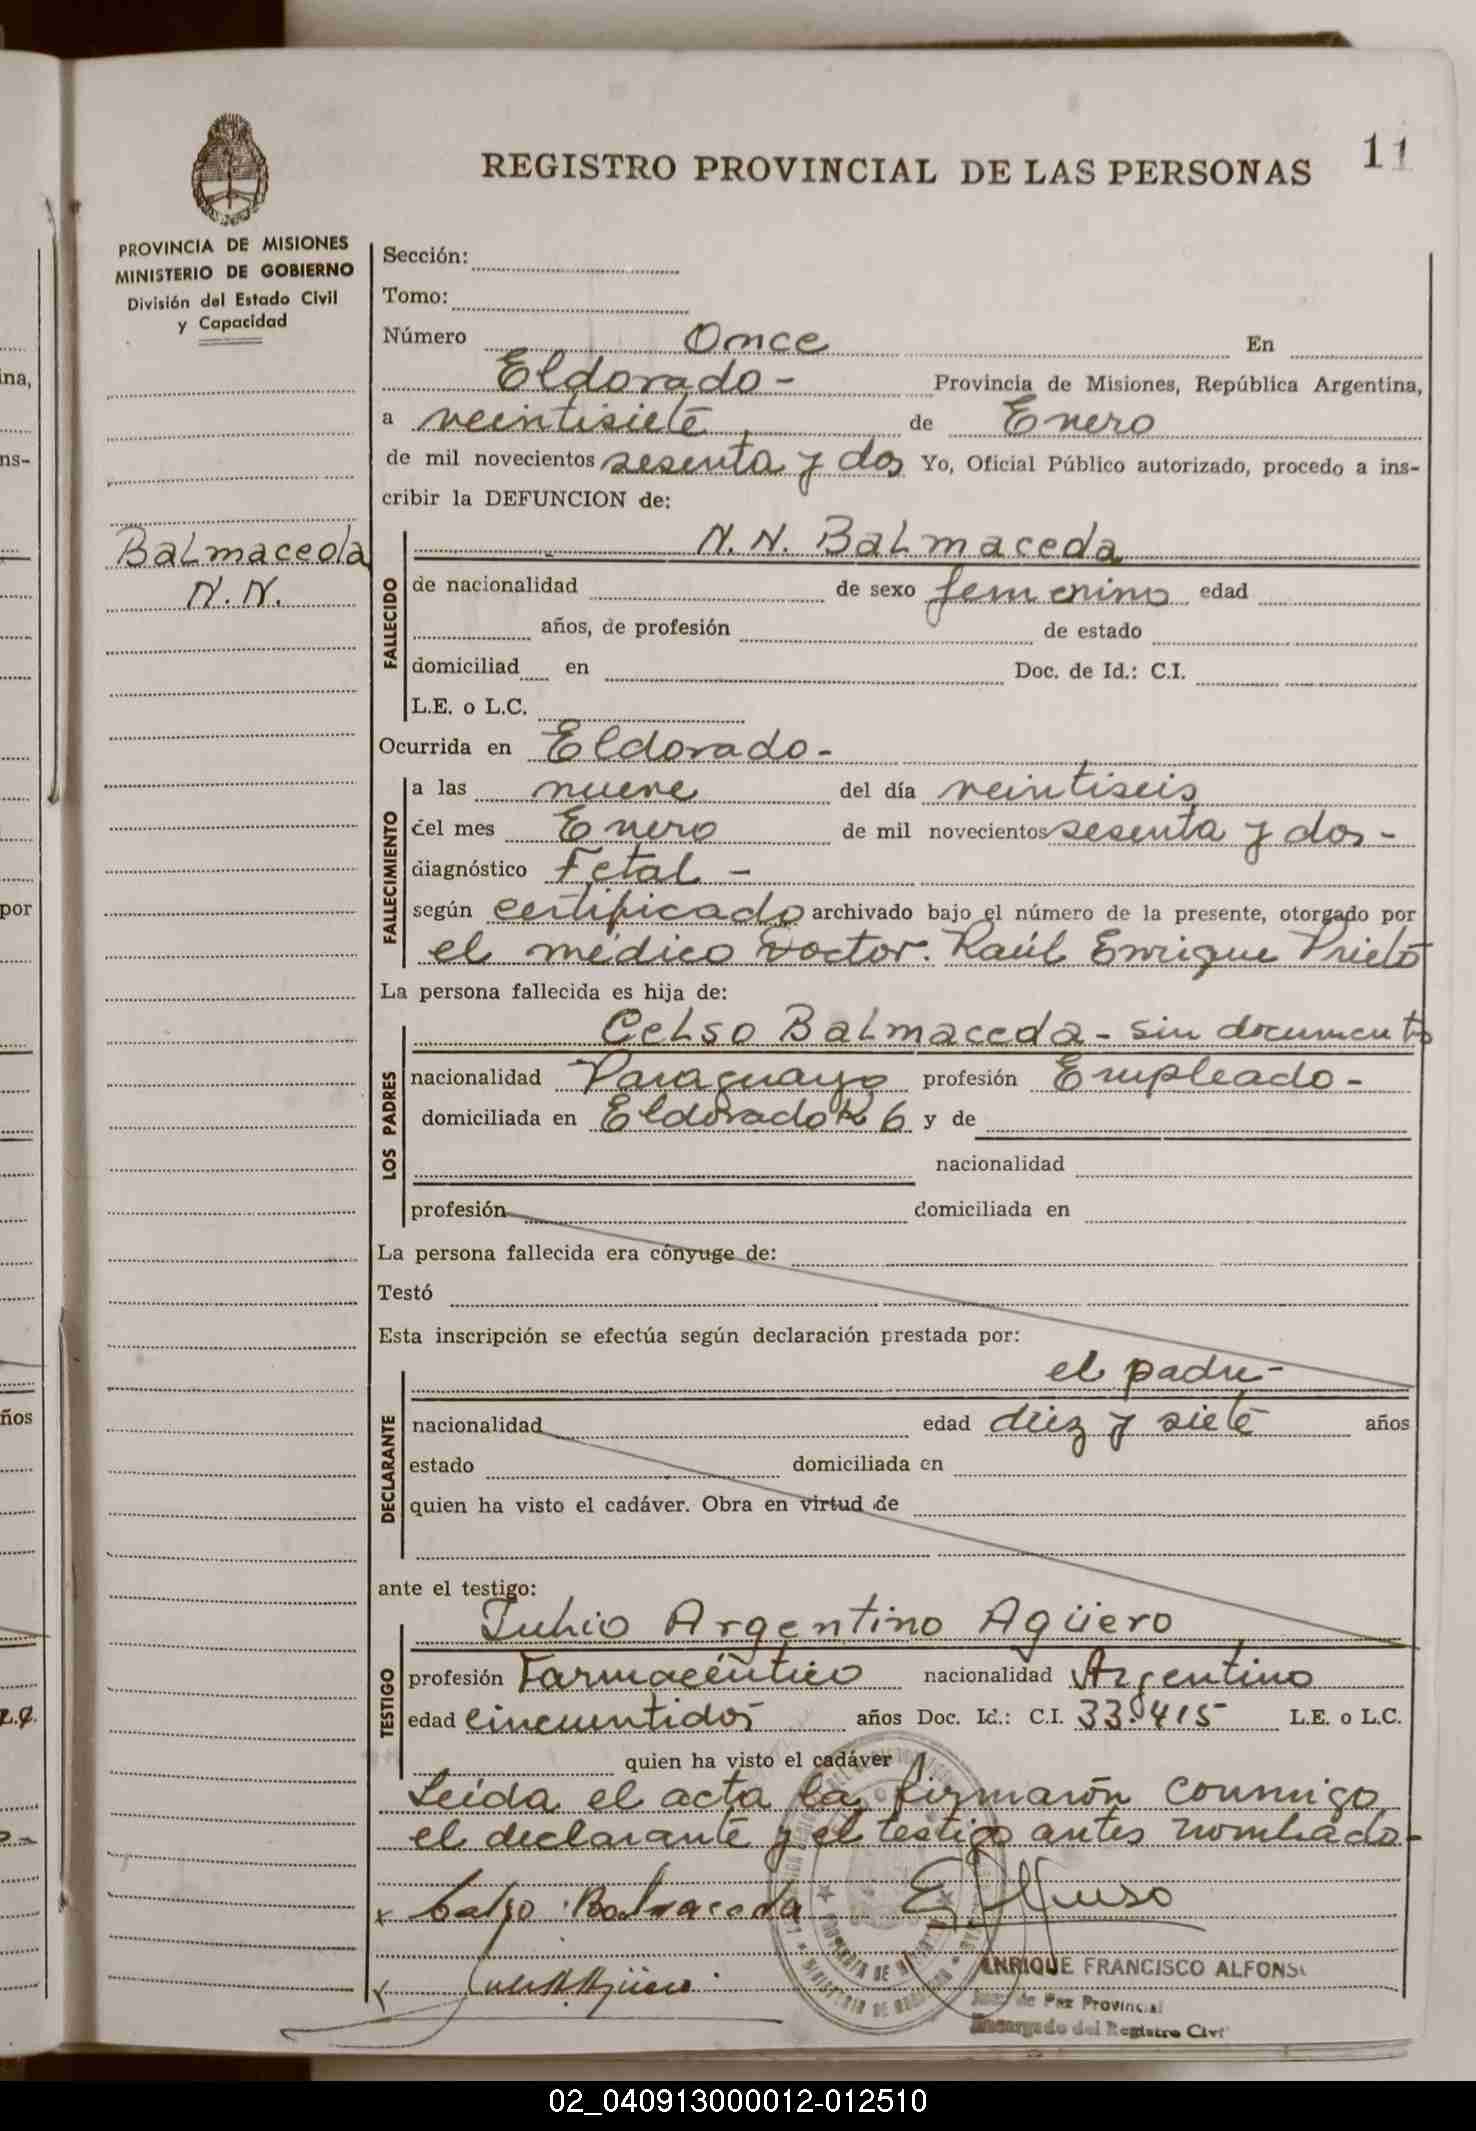 REGISTRO PROVINCIAL DE LAS PERSONAS
11
PROVINCIA DE MISIONES
MINISTERIO DE GOBIERNO
División del Estado Civil
y Capacidad
Balmaceda
N.N.
Sección:
Tomo:
Número Once En
Eldorado - Provincia de Misiones, República Argentina,
a veintisiete de Enero
de mil novecientos sesenta y dos Yo, Oficial Público autorizado, procedo a ins-
cribir la DEFUNCION de:
FALLECIDO
N. N. Balmaceda
de nacionalidad de sexo femenino edad
años, de profesión de estado
domiciliad en Doc. de Id.: C.I.
L.E. o L.C.
Ocurrida en Eldorado -
FALLECIMIENTO
a las nueve del día veintiseis
del mes Enero de mil novecientos sesenta y dos -
diagnóstico Fetal -
según certificado archivado bajo el número de la presente, otorgado por
el médico Doctor. Raúl Enrique Prieto
La persona fallecida es hija de:
LOS PADRES
Celso Balmaceda - sin documento
nacionalidad Paraguayo profesión Empleado -
domiciliada en Eldorado K 6 y de
nacionalidad
profesión domiciliada en
La persona fallecida era cónyuge de:
Testó
Esta inscripción se efectúa según declaración prestada por:
DECLARANTE
el padre -
nacionalidad edad diez y siete años
estado domiciliada en
quien ha visto el cadáver. Obra en virtud de
ante el testigo:
TESTIGO
Julio Argentino Agüero
profesión Farmacéutico nacionalidad Argentino
edad cincuentidos años Doc. Id.: C.I. 33.415 L.E. o L.C.
quien ha visto el cadáver
Leida el acta la firmarón conmigo
el declarante y el testigo antes nombrado -
x Celso Balmaceda
ENRIQUE FRANCISCO ALFONSO
Juez de Paz Provincial
Encargado del Registro Civil
ina,
ns-
por
ños
02_040913000012-012510